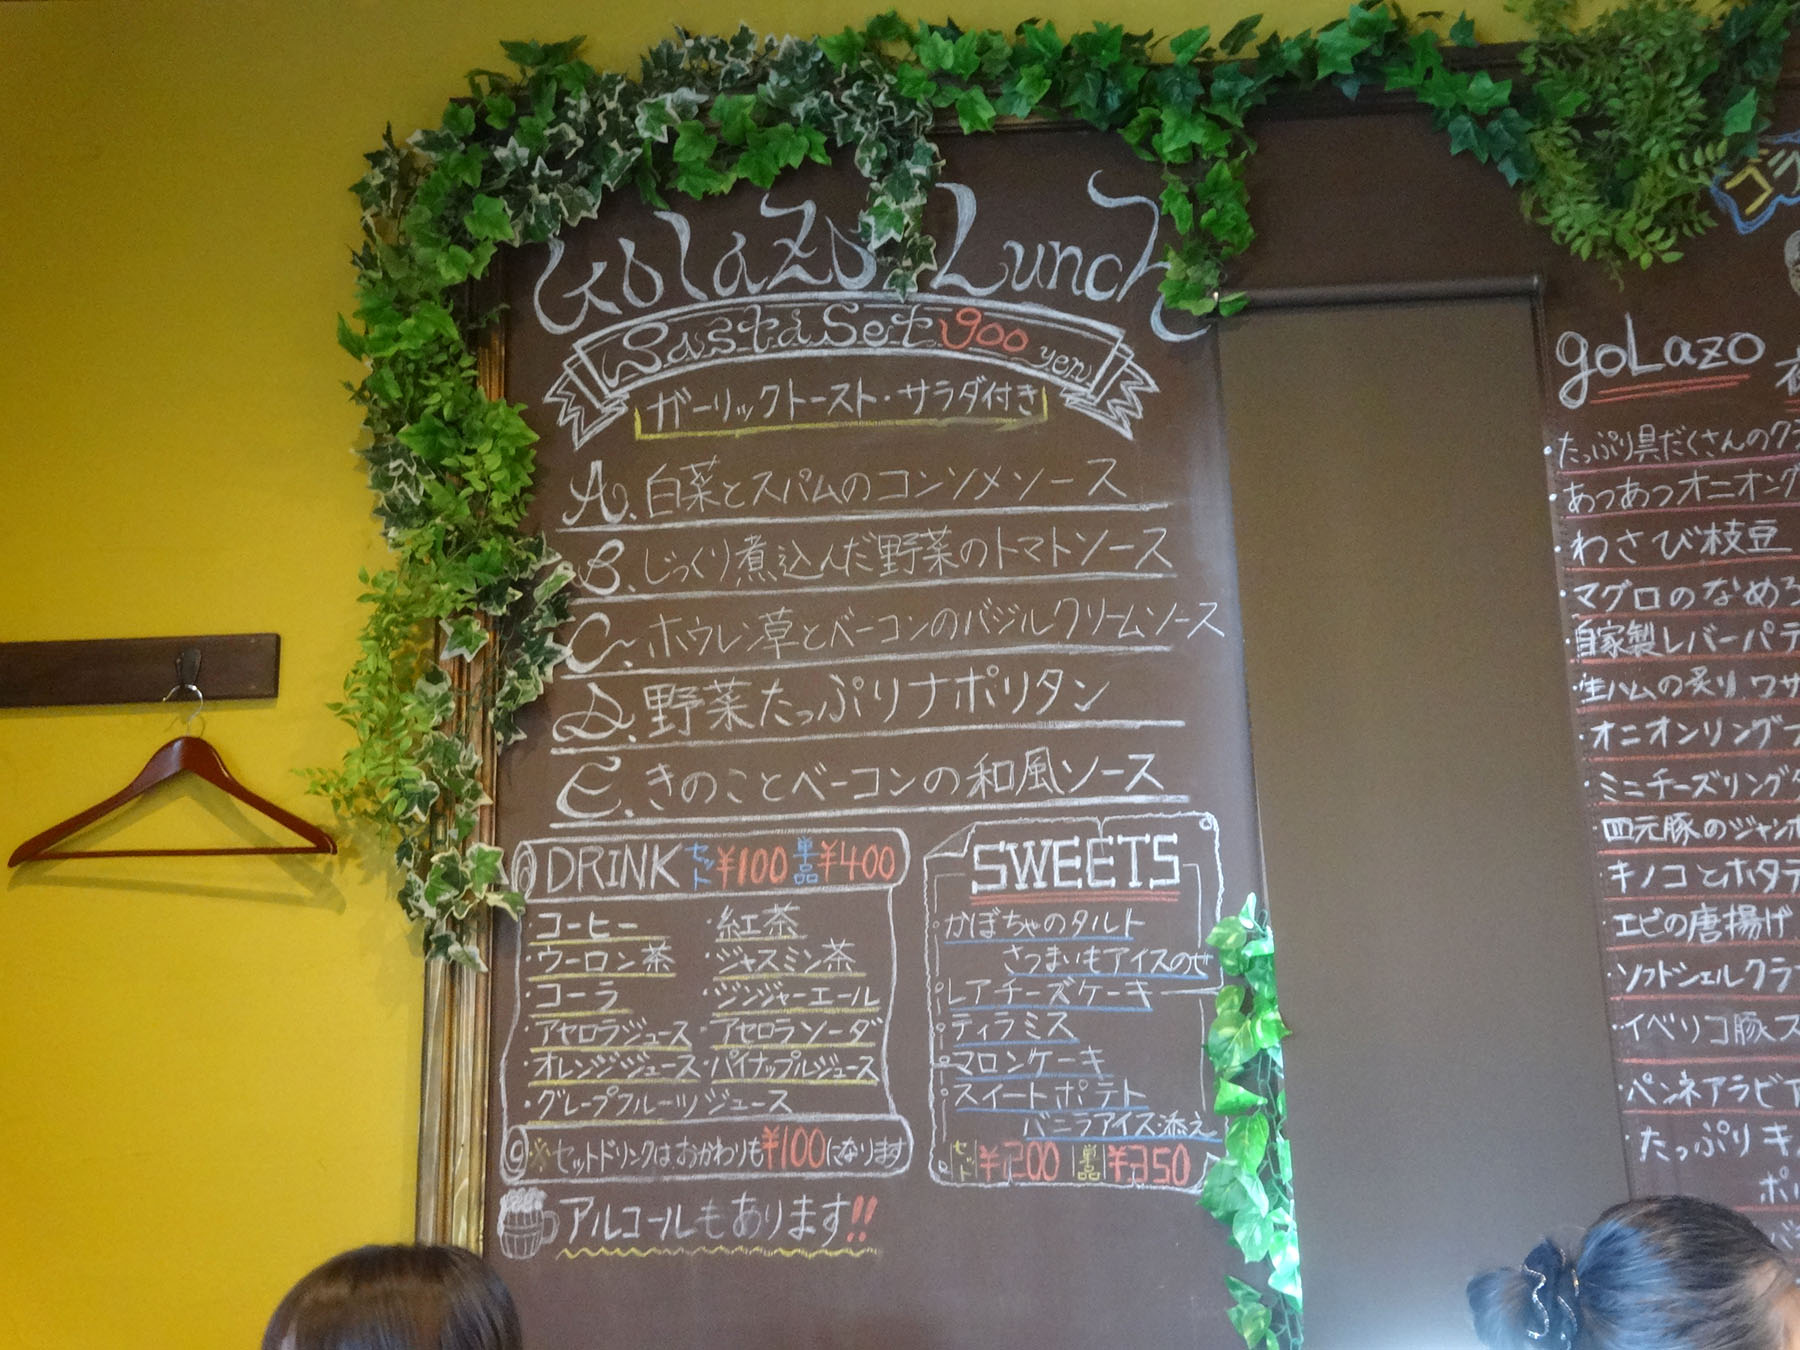 Golazo Lunch
Pasta Set 900 yen
ガーリックトースト・サラダ付き
A. 白菜とスパムのコンソメソース
B. じっくり煮込んだ野菜のトマトソース
C. ホウレン草とベーコンのバジルクリームソース
D. 野菜たっぷりナポリタン
E. きのことベーコンの和風ソース
DRINK セット ¥100 単品 ¥400
・コーヒー ・紅茶
・ウーロン茶 ・ジャスミン茶
・コーラ ・ジンジャーエール
・アセロラジュース ・アセロラソーダ
・オレンジジュース ・パイナップルジュース
・グレープフルーツジュース
※セットドリンクはおかわりも¥100になります
アルコールもあります!!
SWEETS
かぼちゃのタルト
さつまいもアイスのせ
レアチーズケーキ
ティラミス
マロンケーキ
スイートポテト
バニラアイス添え
セット ¥200 単品 ¥350
goLazo
・たっぷり具だくさんのクラ
・あつあつオニオング
・わさび枝豆
・マグロのなめろ
・自家製レバーパテ
・生ハムの炙り ワサ
・オニオンリングフ
・ミニチーズリング
・四元豚のジャンボ
・キノコとホタテ
・エビの唐揚げ
・ソフトシェルクラブ
・イベリコ豚ス
・ペンネアラビア
・たっぷりキノ
ポル